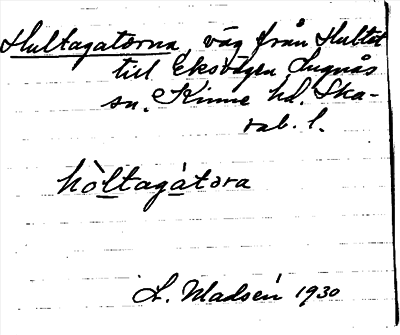 Hultagatorna, väg från Hultet
till Eksvägen Lugnås
sn. Kinne hd. Ska-
rab. l.
hòltagátɷra
L. Madsén 1930